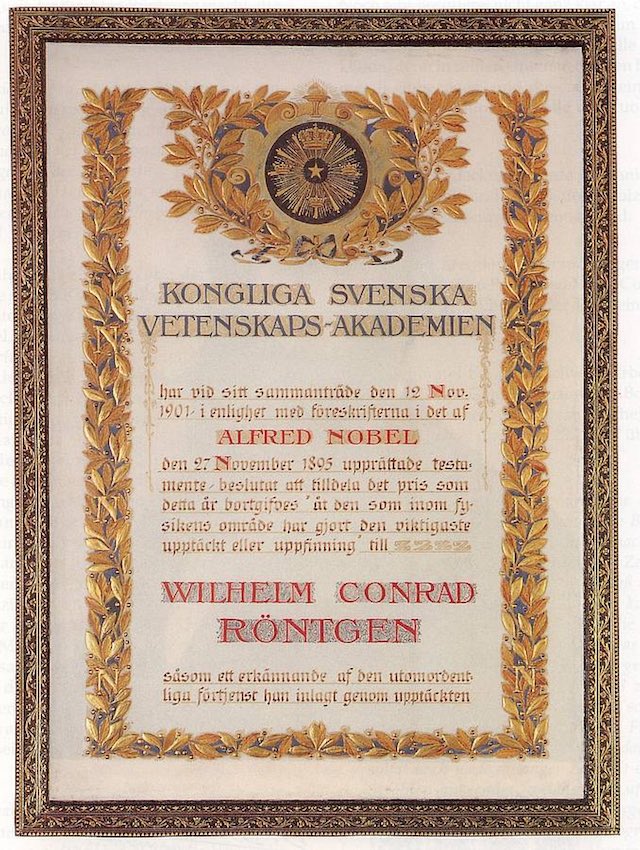 KONGLIGA SVENSKA
VETENSKAPS-AKADEMIEN
har vid sitt sammanträde den 12 Nov.
1901, i enlighet med föreskrifterna i det af
ALFRED NOBEL
den 27 November 1895 upprättade testa-
mente, beslutat att tilldela det pris som
detta år bortgifves "åt den som inom fy-
sikens område har gjort den viktigaste
upptäckt eller uppfinning" till
WILHELM CONRAD
RÖNTGEN
såsom ett erkännande af den utomordent-
liga förtjenst han inlagt genom upptäckten